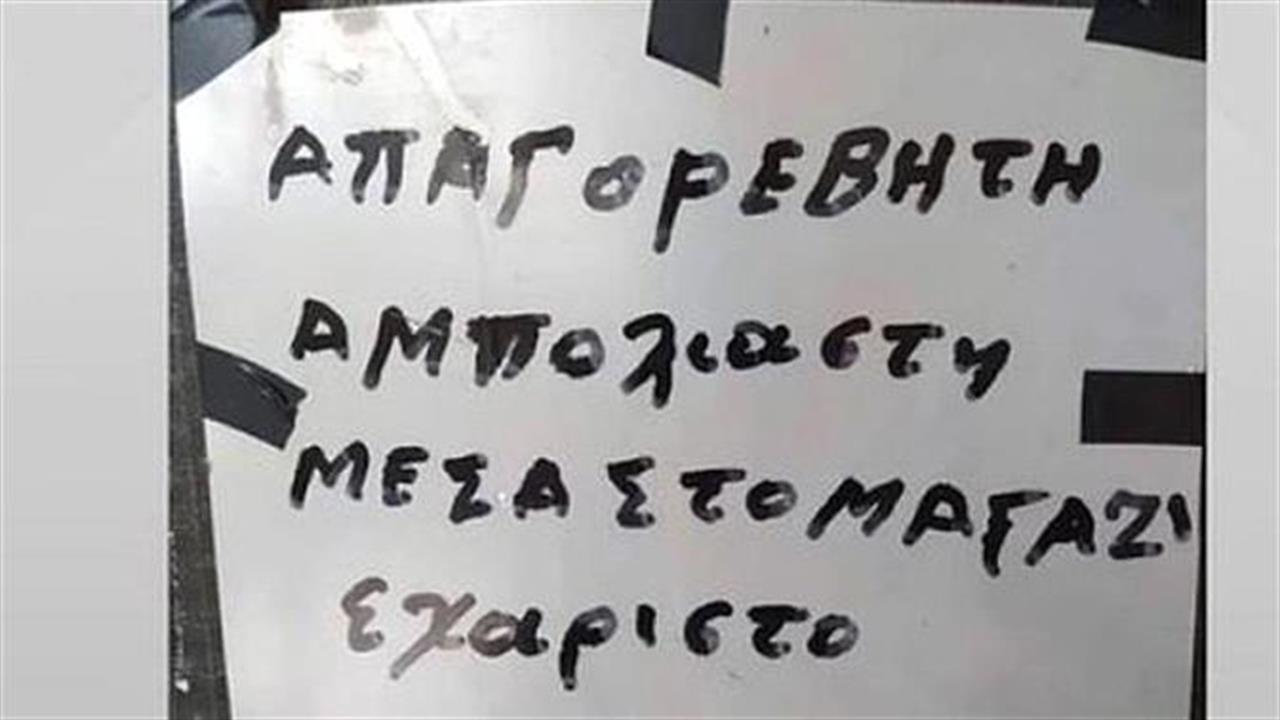 ΑΠΑΓΟΡΕΒΗΤΗ
ΑΜΠΟλιαστη
ΜΕΣΑ ΣΤΟ ΜΑΓΑΖΙ
εχαριστο